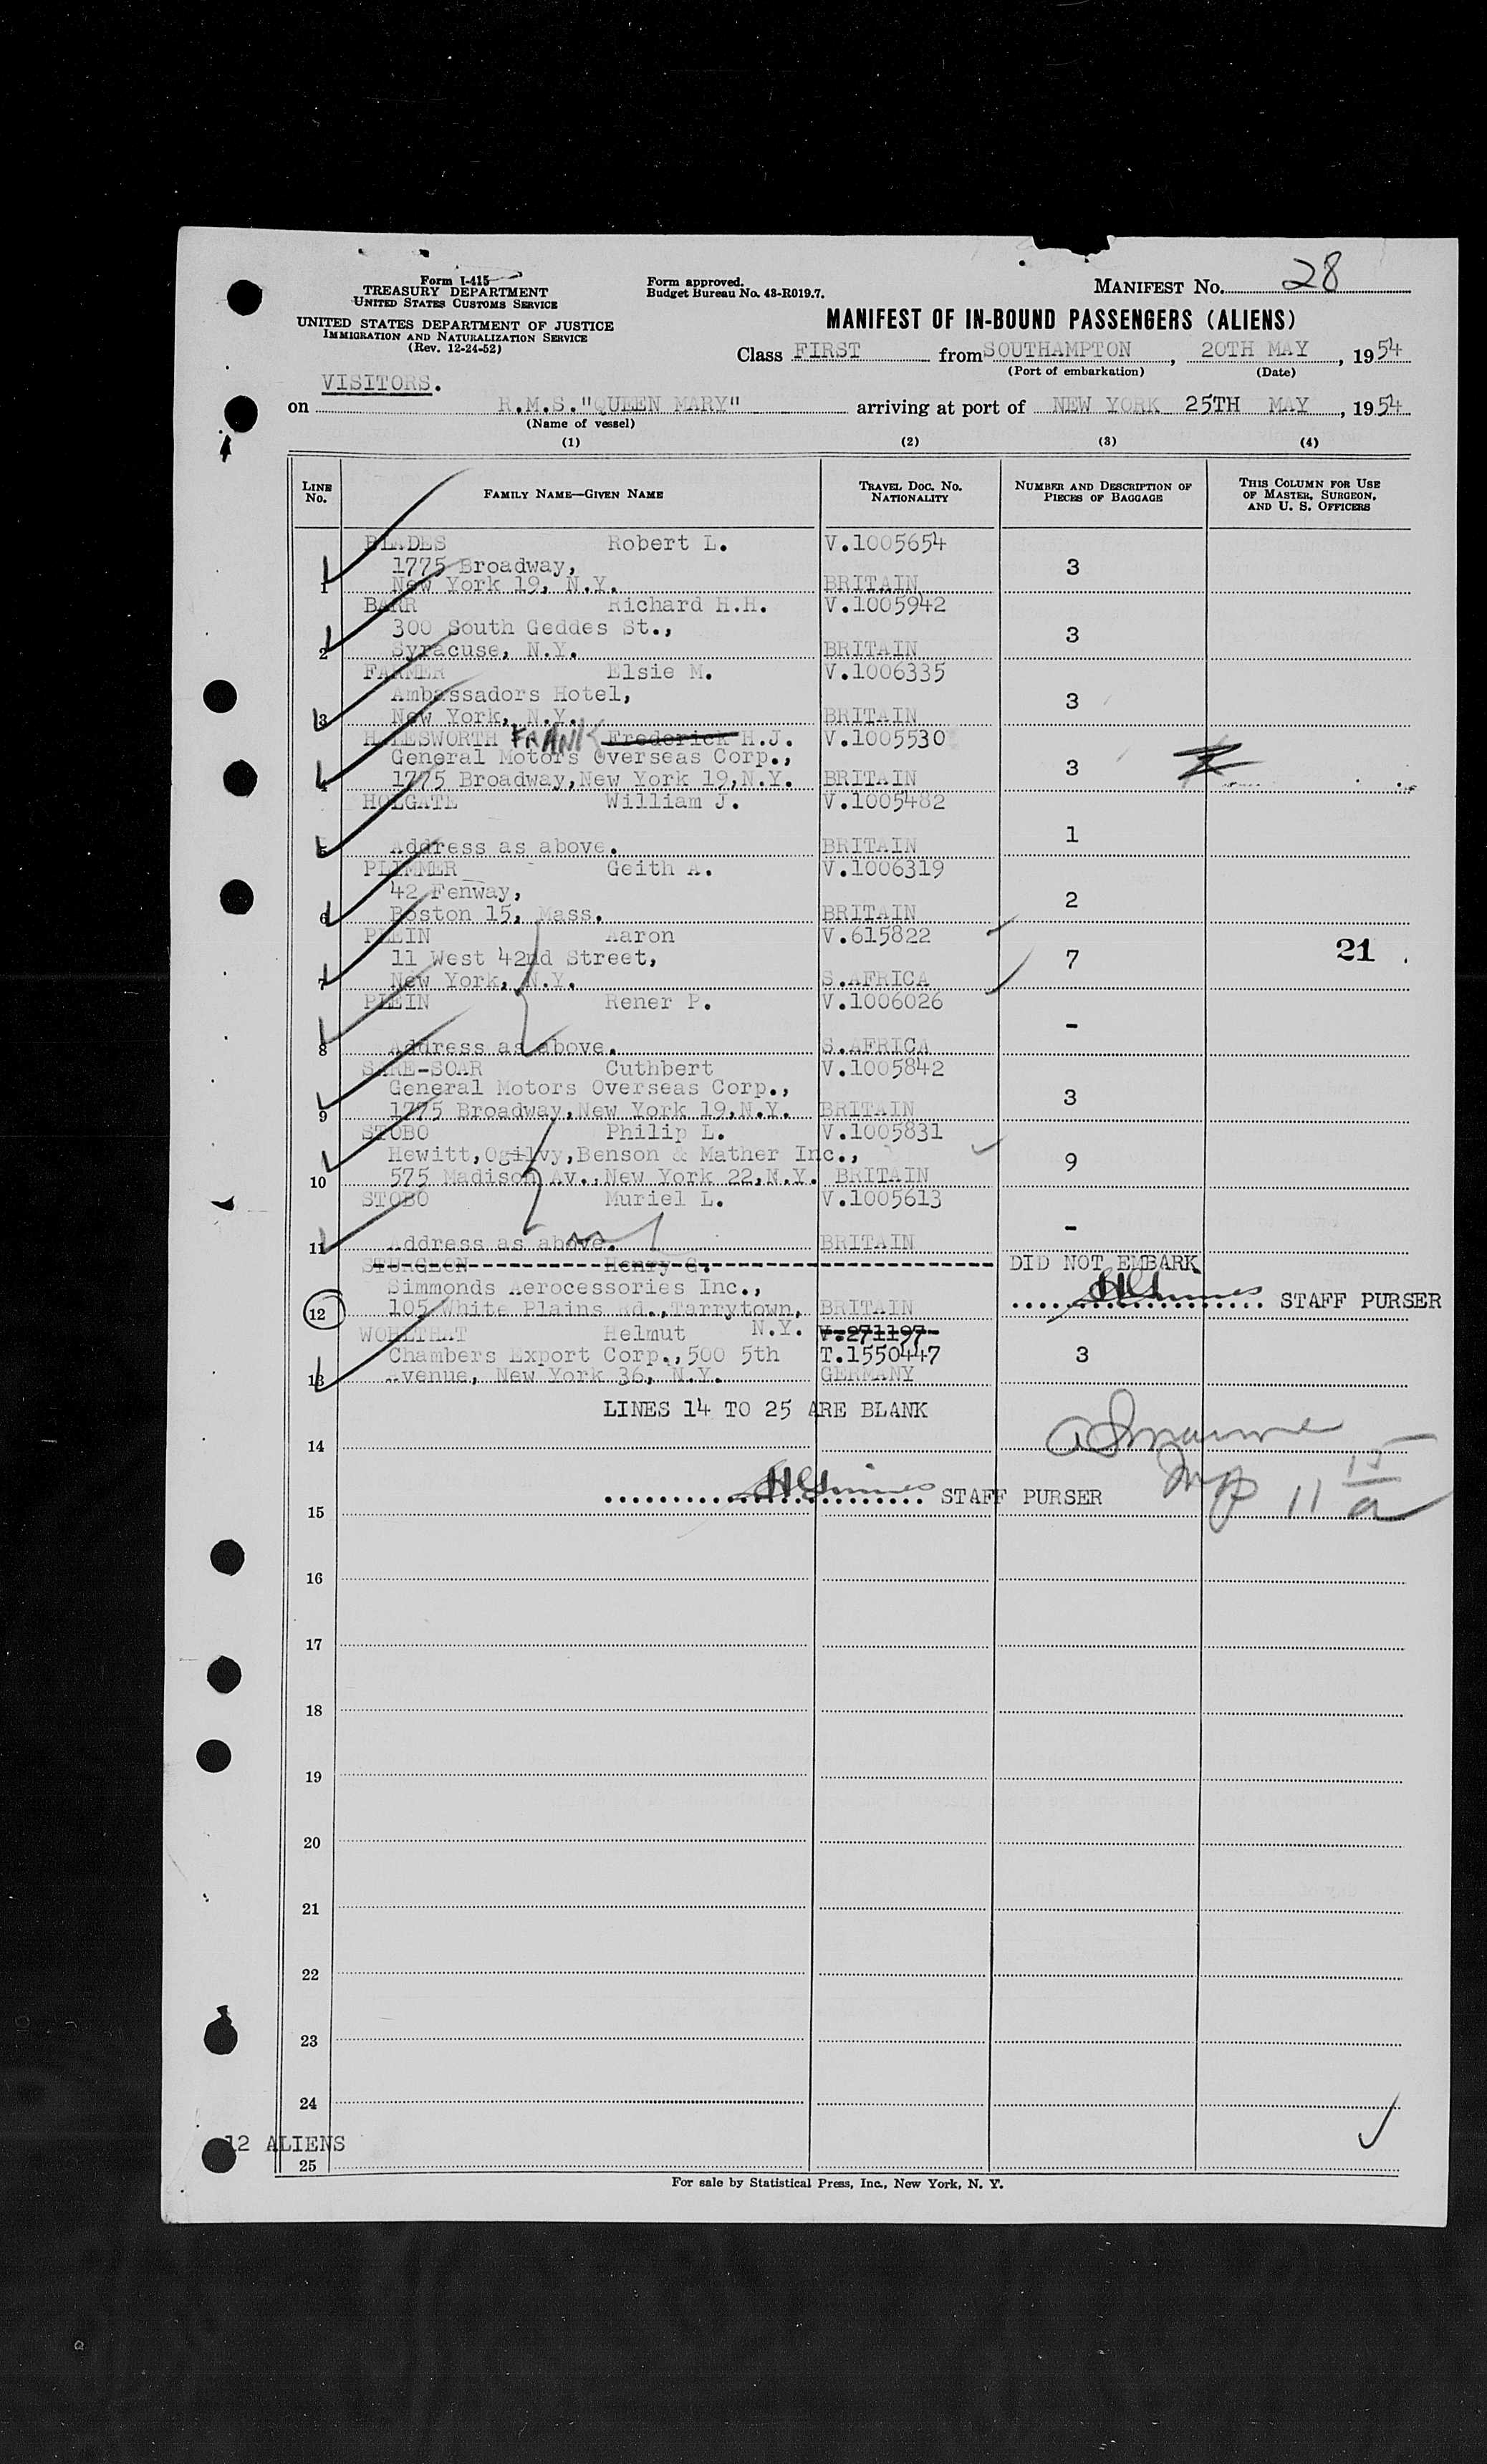 Form I-415
TREASURY DEPARTMENT
UNITED STATES CUSTOMS SERVICE
UNITED STATES DEPARTMENT OF JUSTICE
IMMIGRATION AND NATURALIZATION SERVICE
(Rev. 12-24-52)
Form approved.
Budget Bureau No. 43-R019.7.
MANIFEST NO. 28
MANIFEST OF IN-BOUND PASSENGERS (ALIENS)
Class FIRST from SOUTHAMPTON, 20TH MAY, 1954
(Port of embarkation) (Date)
VISITORS.
on R.M.S."QUEEN MARY" arriving at port of NEW YORK 25TH MAY, 1954
(Name of vessel)
(1) (2) (3) (4)
LINE NO. FAMILY NAME—GIVEN NAME TRAVEL DOC. NO. NATIONALITY NUMBER AND DESCRIPTION OF PIECES OF BAGGAGE THIS COLUMN FOR USE OF MASTER, SURGEON, AND U. S. OFFICERS
BLADES Robert L. V.1005654
1775 Broadway, 3
1 New York 19, N.Y. BRITAIN
BARR Richard H.H. V.1005942
300 South Geddes St., 3
2 Syracuse, N.Y. BRITAIN
FARMER Elsie M. V.1006335
Ambassadors Hotel, 3
3 New York, N.Y. BRITAIN
HALESWORTH FRANK Frederick H.J. V.1005530
General Motors Overseas Corp., 3
4 1775 Broadway, New York 19, N.Y. BRITAIN
HOLGATE William J. V.1005482
1
5 Address as above. BRITAIN
PLIMMER Geith A. V.1006319
42 Fenway, 2
6 Boston 15, Mass. BRITAIN
PLEIN Aaron V.615822
11 West 42nd Street, 7 21
7 New York, N.Y. S.AFRICA
PLEIN Rener P. V.1006026
-
8 Address as above. S.AFRICA
SARE-SOAR Cuthbert V.1005842
General Motors Overseas Corp., 3
9 1775 Broadway, New York 19, N.Y. BRITAIN
STOBO Philip L. V.1005831
Hewitt, Ogilvy, Benson & Mather Inc., 9
10 575 Madison Av., New York 22, N.Y. BRITAIN
STOBO Muriel L. V.1005613
-
11 Address as above. BRITAIN
STURGEON Henry G. DID NOT EMBARK
Simmonds Aerocessories Inc.,
12 105 White Plains Rd., Tarrytown, BRITAIN STAFF PURSER
WOHLTHAT Helmut N.Y. V.271197
Chambers Export Corp., 500 5th T.1550447 3
13 Avenue, New York 36, N.Y. GERMANY
LINES 14 TO 25 ARE BLANK
14
STAFF PURSER 11 15/a
15
16
17
18
19
20
21
22
23
24
12 ALIENS
25
For sale by Statistical Press, Inc., New York, N. Y.